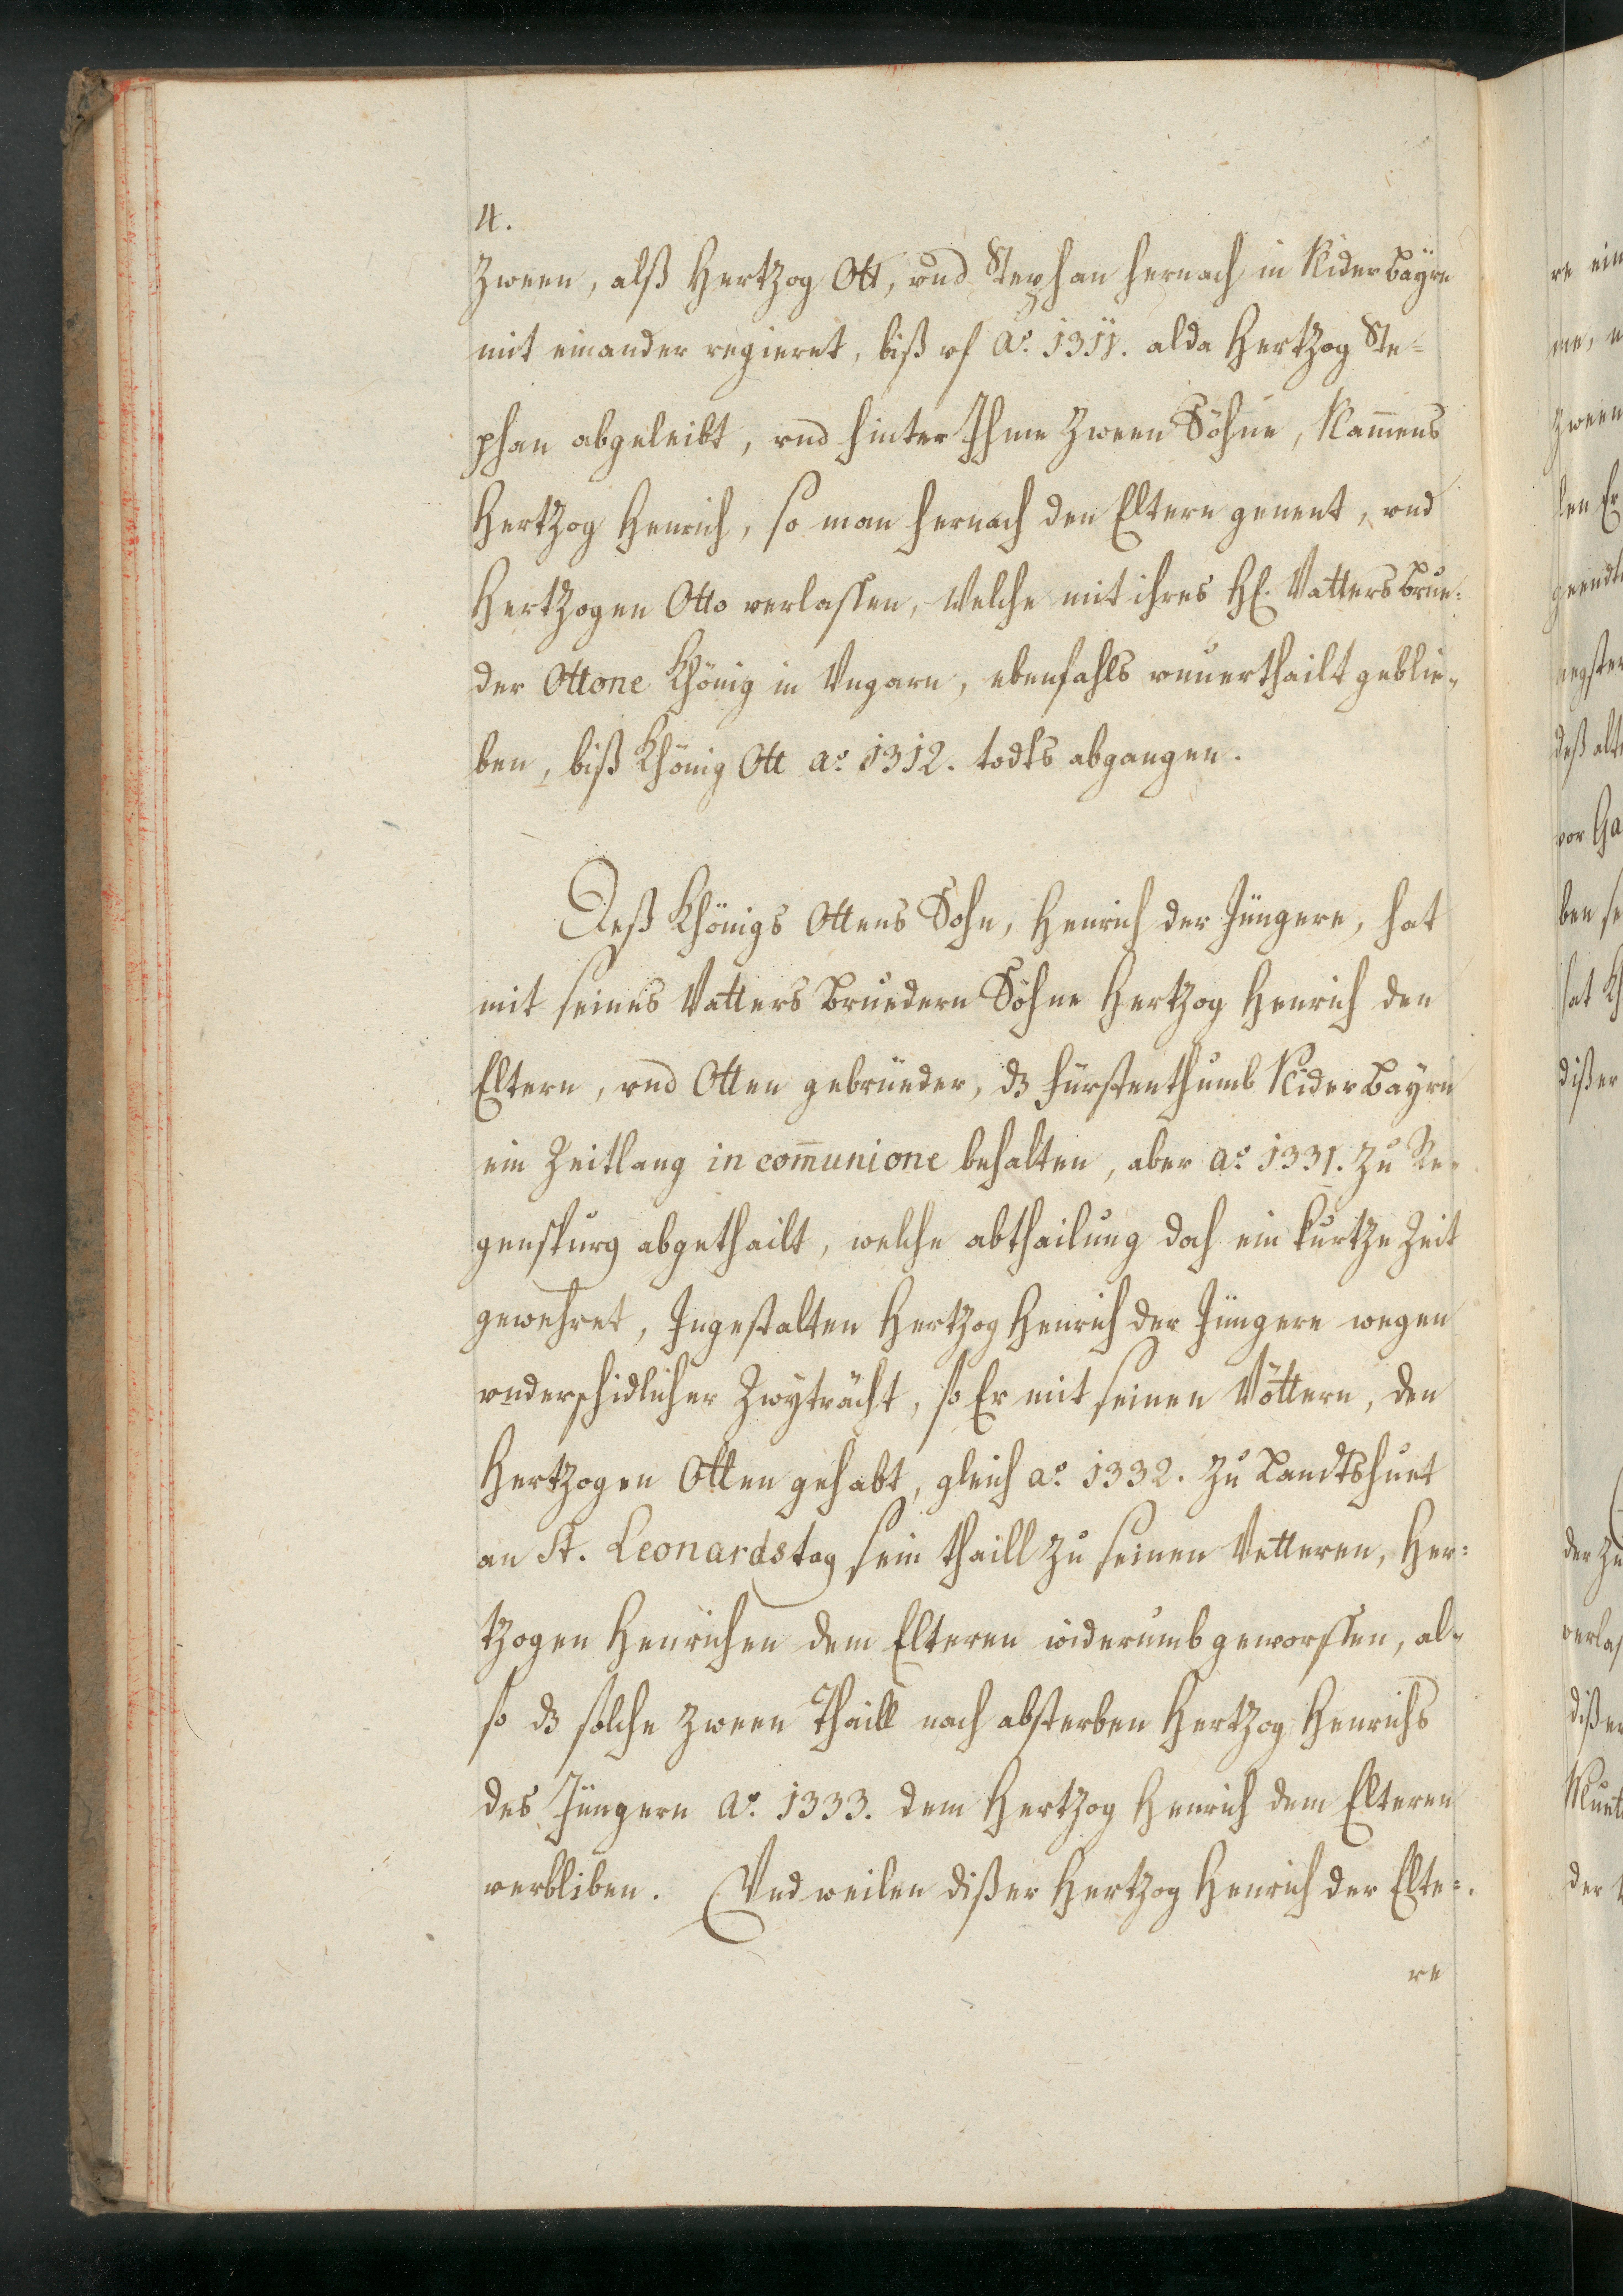 4.
Zween, alß Hertzog Ott, vnd Stephan hernach in Nider Bayrn
mit einander regieret, biß vf Aº. 1311. alda Hertzog Ste=
phan abgeleibt, vnd hinter Ihme zween Söhne, Nam̄ens
Hertzog Henrich, so man hernach den Eltern genent, vnd
Hertzogen Otto verlassen, welche mit ihres H. Vatters Brue=
der Ottone Khönig in Vngarn, ebenfahls vnuerthailt geblie=
ben, biß Khönig Ott aº. 1312. todts abgangen.
Deß Khönigs Ottens Sohn, Henrich der Jüngere, hat
mit seines Vatters Bruedern Söhne Hertzog Henrich den
Eltern, vnd Otten gebrüeder, dz Fürstenthumb Nider Bayrn
ein Zeitlang in com̄unione behalten, aber aº. 1331. zu Re=
genspurg abgethailt, welche abthailung doch ein kurtze Zeit
gewehret, Ingestalten Hertzog Henrich der Jüngere wegen
vnderschidlicher Zwyträcht, so Er mit seinen Vöttern, den
Hertzogen Otten gehabt, gleich aº. 1332. zu Landtshuet
an St. Leonardstag sein thaill zu seinen Vetteren, Her=
tzogen Henrichen dem Elteren widerumb geworffen, al=
so dz solche zween Thaill nach absterben Hertzog Henrichs
des Jüngern Aº. 1333. dem Hertzog Henrich dem Elteren
verbliben. Vnd weilen dißer Hertzog Henrich der Elte=
re